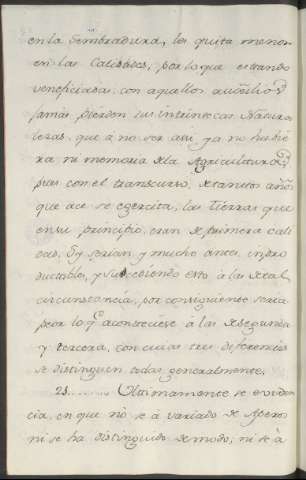 en la Sembradura, les quita menor
en las Calidades, por lo que estando
veneficiadas, con aquellos auxilios
Jamas pierden sus intrinsecas Natura
lezas, que á no ser assi ya no hubie
ra ni memoria de la Agricultura,
pues con el transcurso, de tantos años
que ace se egercita, las Tierras que
en su principio, eran de primera cali
dad, serian y mucho antes, inpro
ductables, y sucediendo esto á las de tal
circunstancia, por consiguiente seria
peor lo q.e aconteciese á las de segunda
y tercera, con cuias tres diferencias
se distinguen todas generalmente.
23......... Ultimamente se eviden
cia, en que no se á variado de Apero
ni se ha distinguido de modo, ni se á